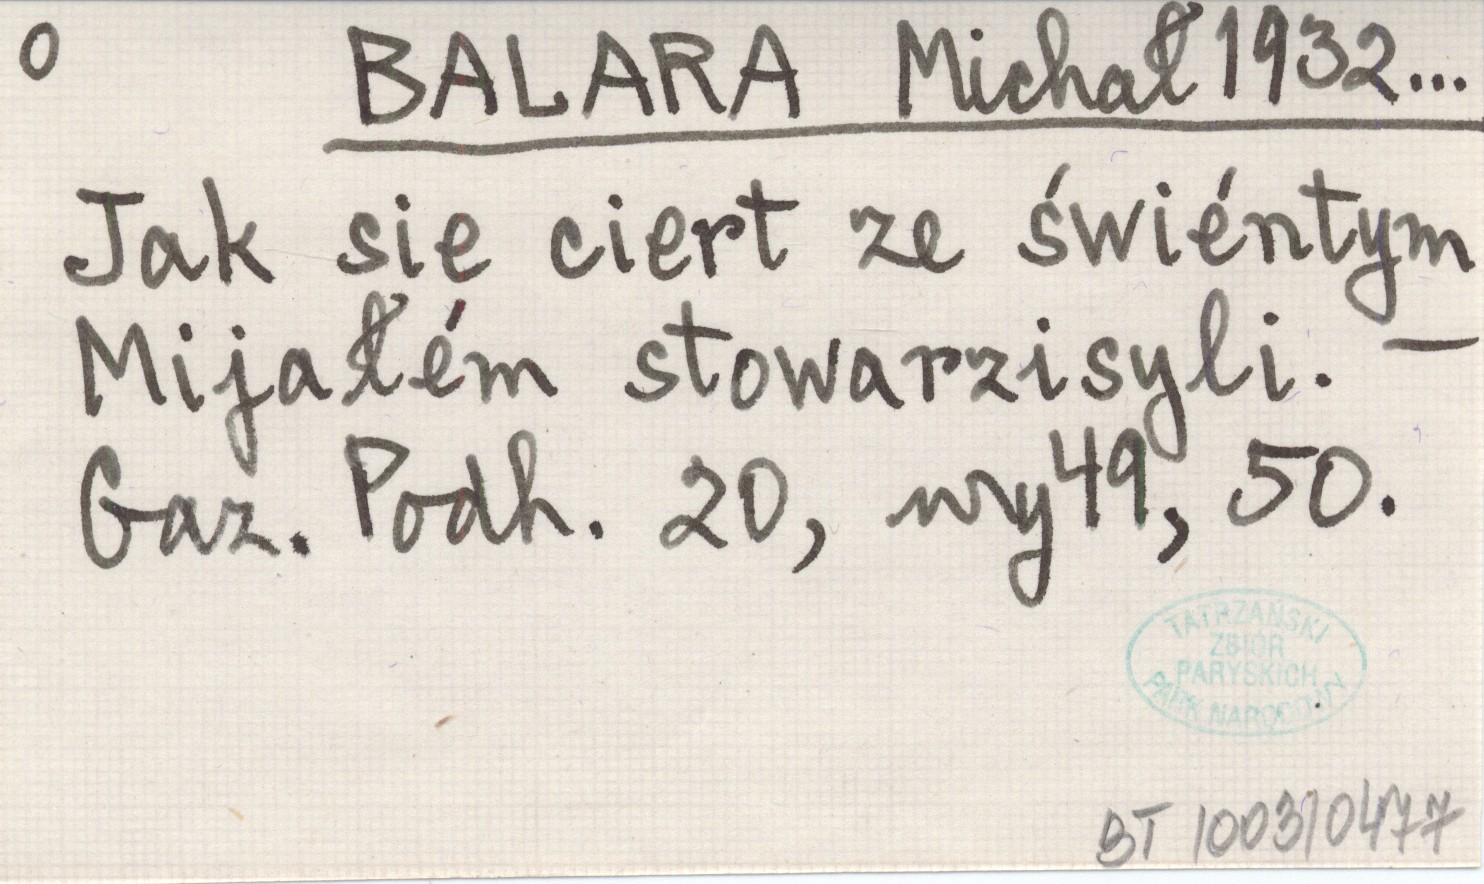 0 BALARA Michał 1932...
Jak sie ciert ze świéntym
Mijałém stowarzisyli. —
Gaz. Podh. 20, nry 49, 50.
TATRZAŃSKI
ZBIÓR
PARYSKICH
PARK NARODOWY
BT 1003/0477